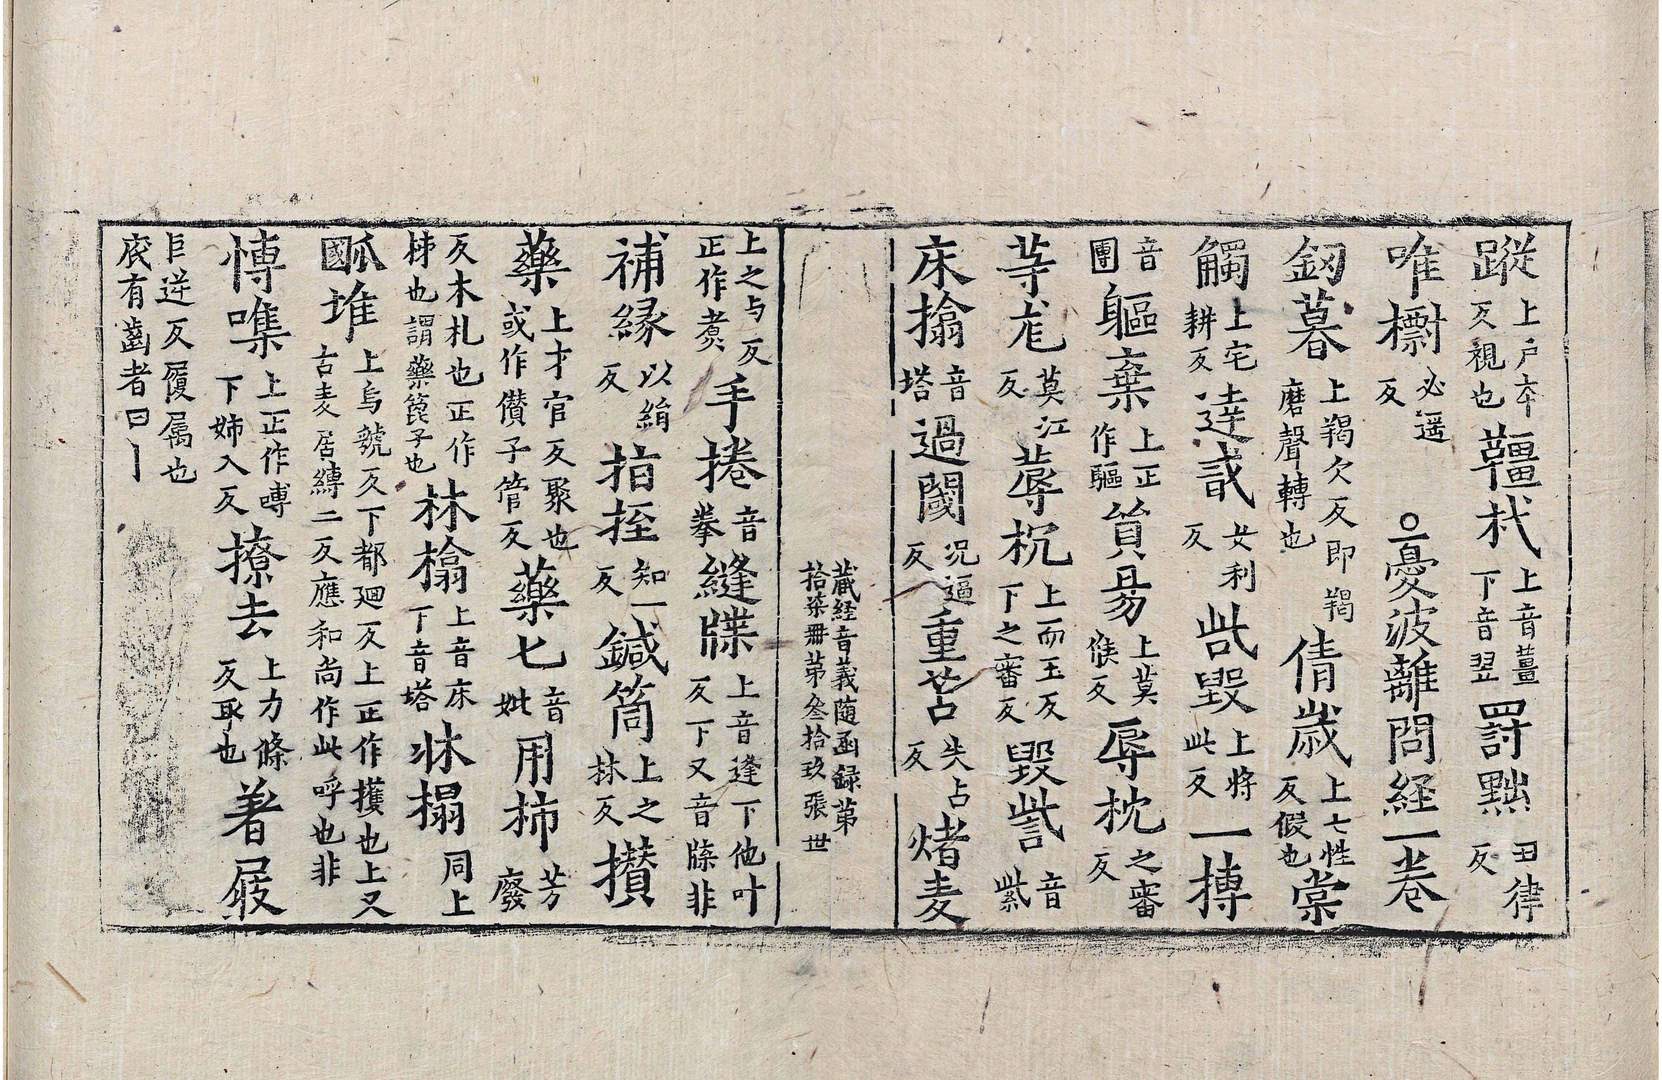 蹤上戶本反視也韁杙上音薑下音翌罸黜丑律反
唯檦必遥反○憂波離問経一卷
釰暮上羯欠反即羯磨聲轉也倩歲上七性反假也棠
觸上宅耕反逹貳女利反呰毀上將此反一摶
音團軀棄上正作驅貿易上莫候反辱枕之審反
䓁尨莫江反蓐枕上而玉反下之審反毀呰音紫
床㩉音塔過閾况逼反重苫失占反㷮麦
蔵経音義随函録第
拾柒冊第叄拾玖張世
上之与反正作煑手捲音拳縫㸣上音逢下他叶反下又音牒非
補緣以絹反拍挃知一反鍼筒上之林反攅
藥上才官反聚也或作儹子管反藥匕音妣用柿芳廢
反木札也正作柹也謂藥箆子也林㯓上音床下音塔牀榻同上
呱堆上烏號反下都廻反上正作擭也上又古麦居縛二反應和尚作此呼也非
愽噍上正作嚩下姊入反撩去上力條反取也着屐
巨逆反履属也㞋有齒者曰丨